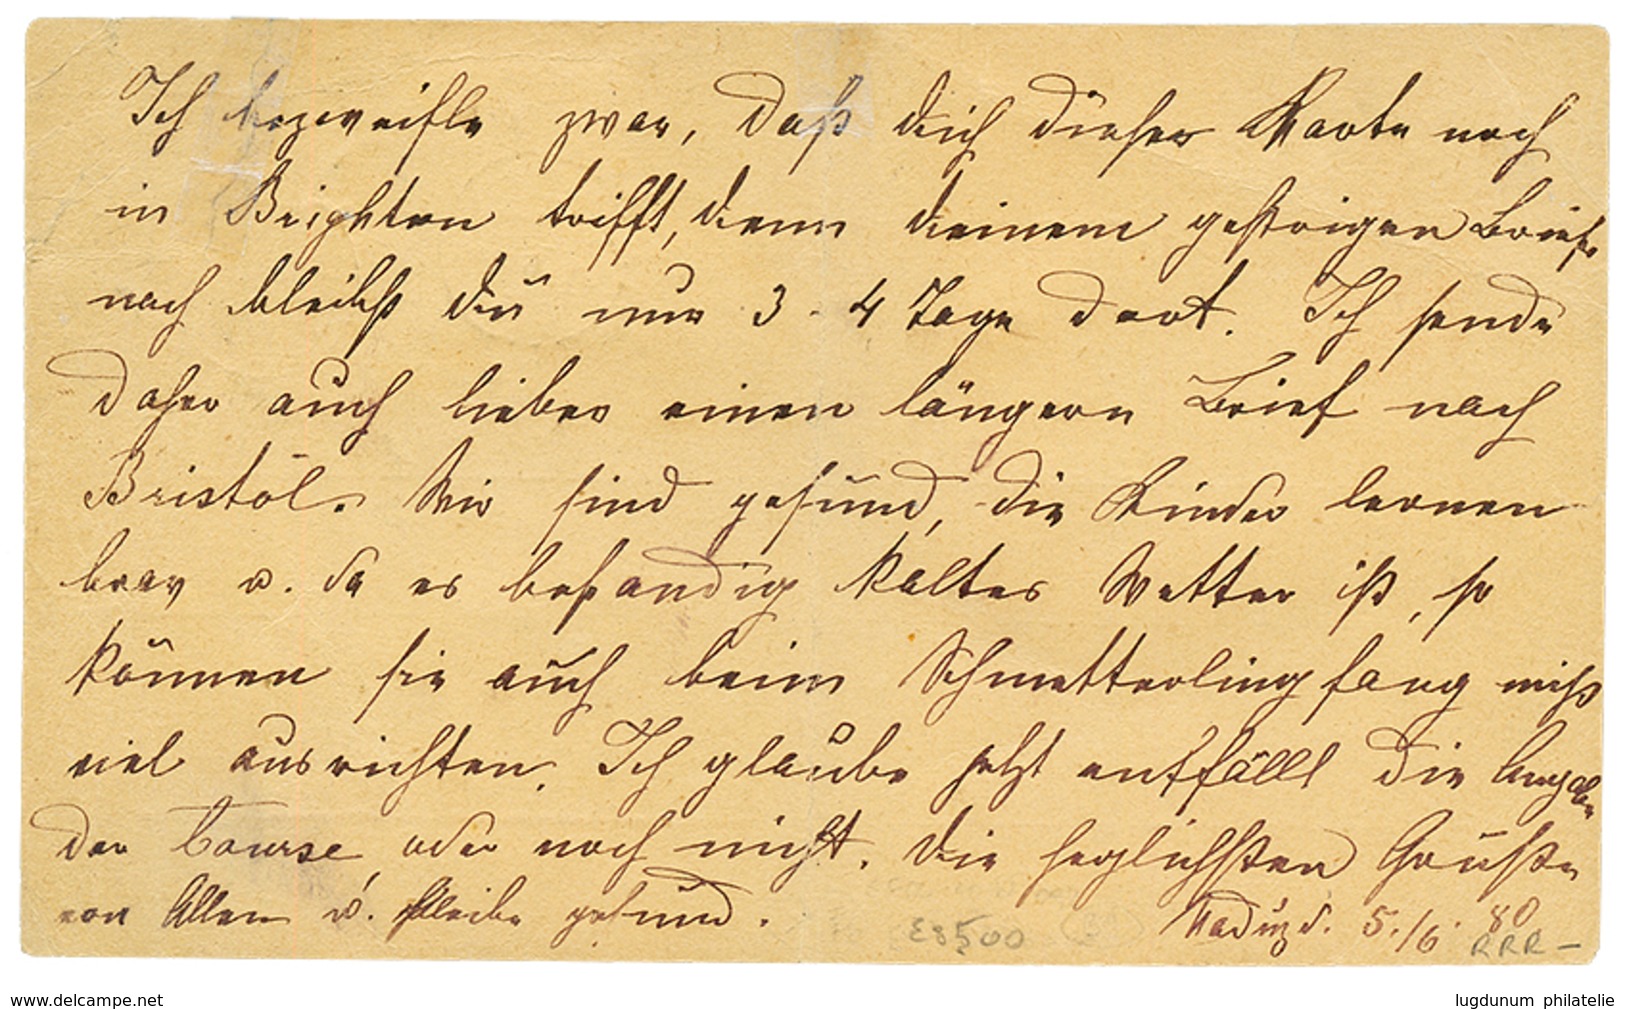 Ich bezweifle zwar, daß dich diese Karte noch
in Brighton trifft, denn deinem gestrigen Briefe
nach bleibst du nur 3-4 Tage dort. Ich sende
daher auch lieber einen längern Brief nach
Bristol. Wir sind gesund, die Kinder lernen
brav u. da es beständig kaltes Wetter ist, so
können sie auch beim Schmetterlingfang nicht
viel ausrichten. Ich glaube jetzt entfällt die Angabe
der Course, oder noch nicht. Die herzlichsten Grüße
von Allen u. bleibe gesund.
Vaduz d. 5./6. 80
RRR -
www.delcampe.net
lugdunum philatelie